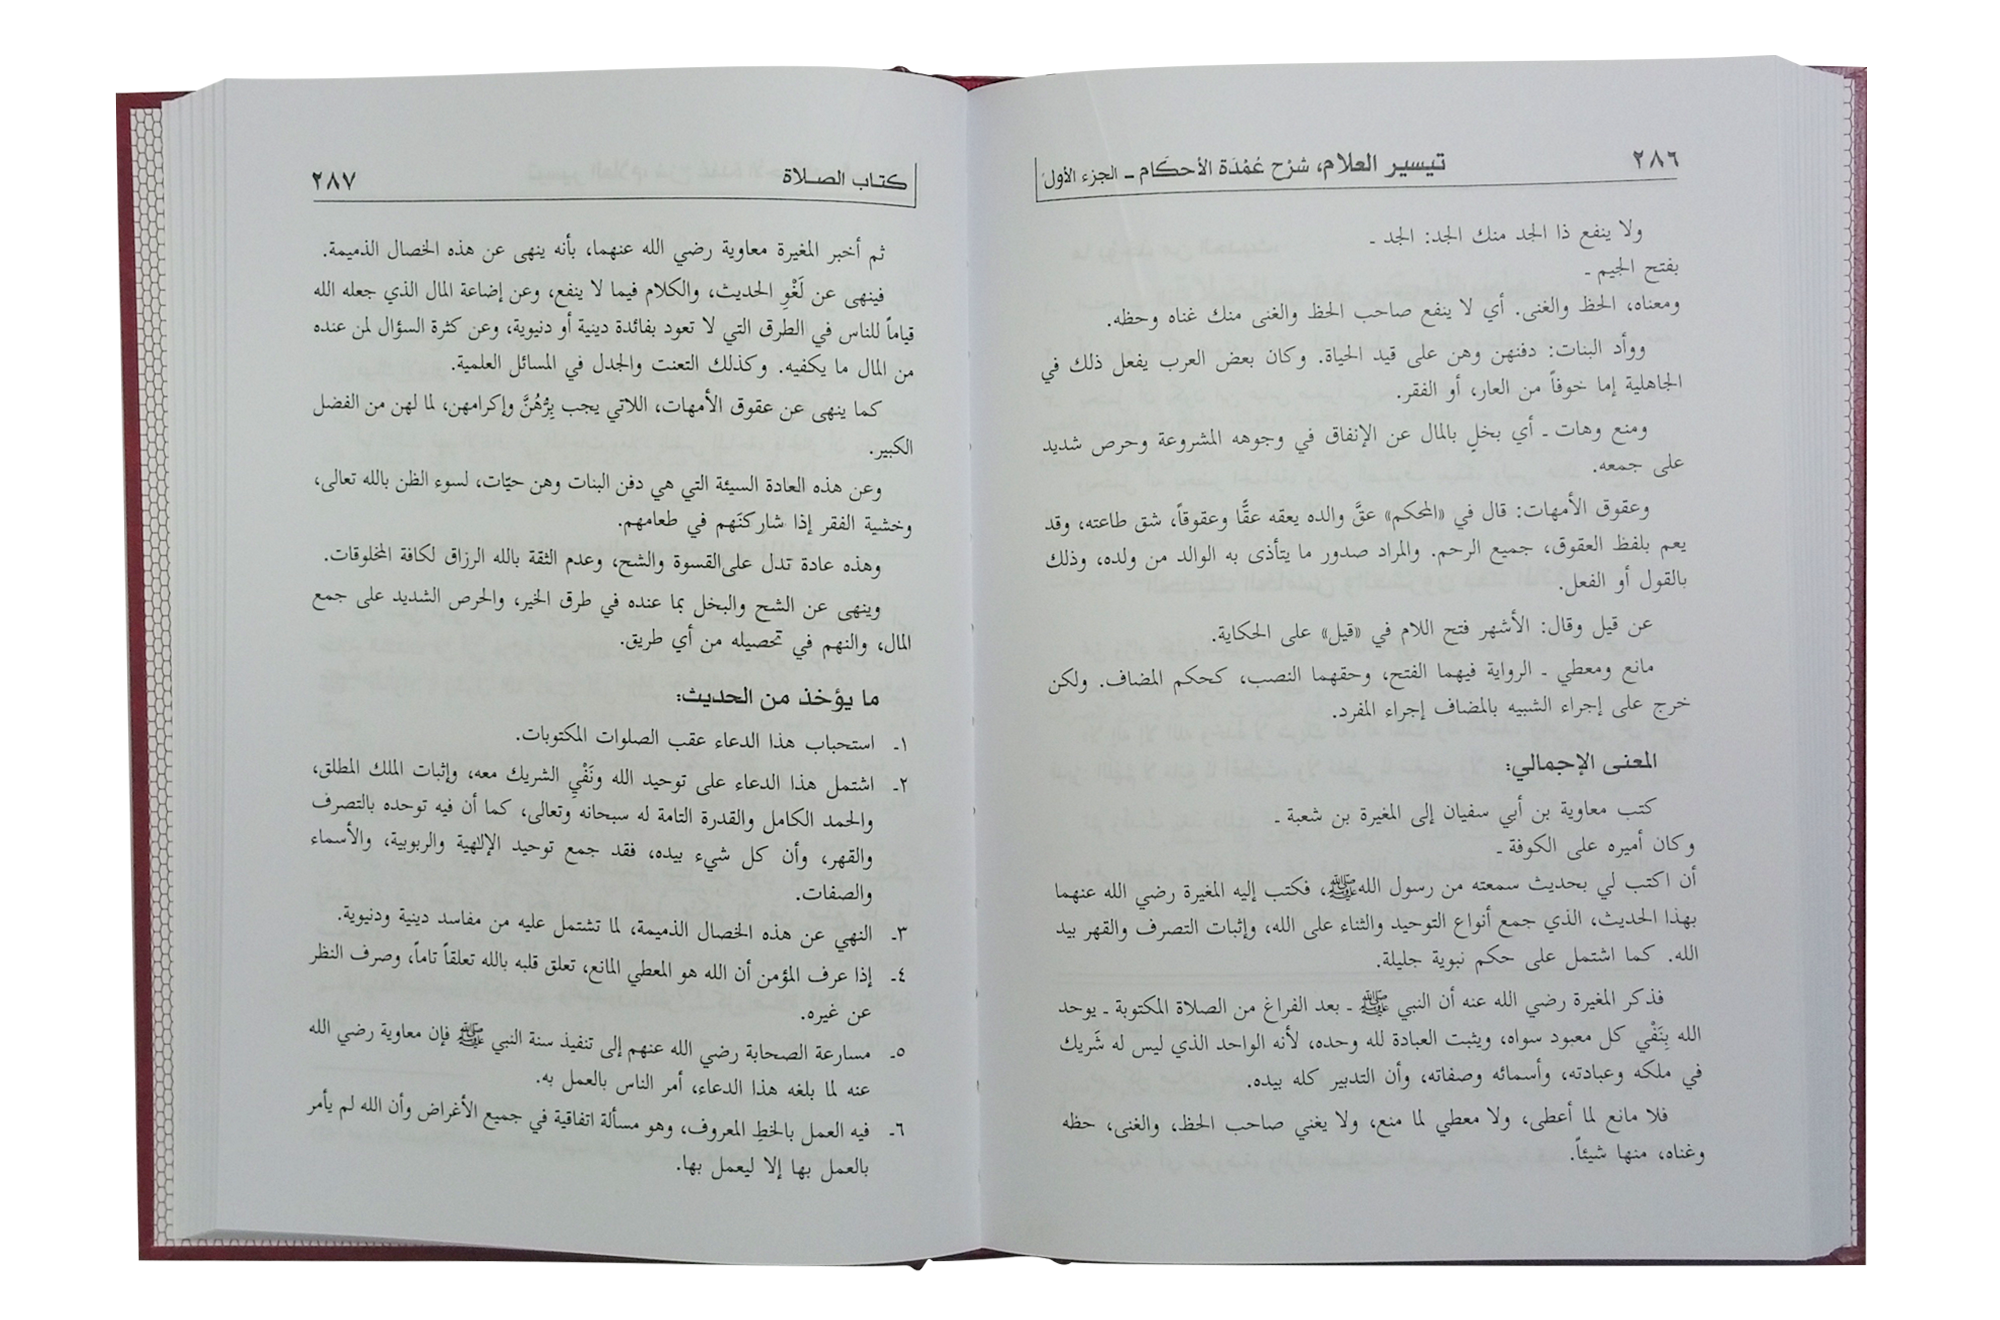 ٢٨٦ تيسير العلام، شرح عُمْدَة الأحكام ـ الجزء الأول
ولا ينفع ذا الجد منك الجد: الجد ـ
بفتح الجيم ـ
ومعناه، الحظ والغنى. أي لا ينفع صاحب الحظ والغنى منك غناه وحظه.
ووأد البنات: دفنهن وهن على قيد الحياة. وكان بعض العرب يفعل ذلك في
الجاهلية إما خوفاً من العار، أو الفقر.
ومنع وهات ـ أي بخلٍ بالمال عن الإنفاق في وجوهه المشروعة وحرص شديد
على جمعه.
وعقوق الأمهات: قال في «المحكم» عقَّ والده يعقه عقًّا وعقوقاً، شق طاعته، وقد
يعم بلفظ العقوق، جميع الرحم. والمراد صدور ما يتأذى به الوالد من ولده، وذلك
بالقول أو الفعل.
عن قيل وقال: الأشهر فتح اللام في «قيل» على الحكاية.
مانع ومعطي ـ الرواية فيهما الفتح، وحقهما النصب، كحكم المضاف. ولكن
خرج على إجراء الشبيه بالمضاف إجراء المفرد.
المعنى الإجمالي:
كتب معاوية بن أبي سفيان إلى المغيرة بن شعبة ـ
وكان أميره على الكوفة ـ
أن اكتب لي بحديث سمعته من رسول الله ﷺ، فكتب إليه المغيرة رضي الله عنهما
بهذا الحديث، الذي جمع أنواع التوحيد والثناء على الله، وإثبات التصرف والقهر بيد
الله. كما اشتمل على حكم نبوية جليلة.
فذكر المغيرة رضي الله عنه أن النبي ﷺ ـ بعد الفراغ من الصلاة المكتوبة ـ يوحد
الله بِنَفْي كل معبود سواه، ويثبت العبادة لله وحده، لأنه الواحد الذي ليس له شَريك
في ملكه وعبادته، وأسمائه وصفاته، وأن التدبير كله بيده.
فلا مانع لما أعطى، ولا معطي لما منع، ولا يغني صاحب الحظ، والغنى، حظه
وغناه، منها شيئاً.
كتاب الصلاة ٢٨٧
ثم أخبر المغيرة معاوية رضي الله عنهما، بأنه ينهى عن هذه الخصال الذميمة.
فينهى عن لَغْوِ الحديث، والكلام فيما لا ينفع، وعن إضاعة المال الذي جعله الله
قياماً للناس في الطرق التي لا تعود بفائدة دينية أو دنيوية، وعن كثرة السؤال لمن عنده
من المال ما يكفيه. وكذلك التعنت والجدل في المسائل العلمية.
كما ينهى عن عقوق الأمهات، اللاتي يجب بِرُّهُنَّ وإكرامهن، لما لهن من الفضل
الكبير.
وعن هذه العادة السيئة التي هي دفن البنات وهن حيّات، لسوء الظن بالله تعالى،
وخشية الفقر إذا شاركنَهم في طعامهم.
وهذه عادة تدل على القسوة والشح، وعدم الثقة بالله الرزاق لكافة المخلوقات.
وينهى عن الشح والبخل بما عنده في طرق الخير، والحرص الشديد على جمع
المال، والنهم في تحصيله من أي طريق.
ما يؤخذ من الحديث:
١ـ استحباب هذا الدعاء عقب الصلوات المكتوبات.
٢ـ اشتمل هذا الدعاء على توحيد الله ونَفْيِ الشريك معه، وإثبات الملك المطلق،
والحمد الكامل والقدرة التامة له سبحانه وتعالى، كما أن فيه توحده بالتصرف
والقهر، وأن كل شيء بيده، فقد جمع توحيد الإلهية والربوبية، والأسماء
والصفات.
٣ـ النهي عن هذه الخصال الذميمة، لما تشتمل عليه من مفاسد دينية ودنيوية.
٤ـ إذا عرف المؤمن أن الله هو المعطي المانع، تعلق قلبه بالله تعلقاً تاماً، وصرف النظر
عن غيره.
٥ـ مسارعة الصحابة رضي الله عنهم إلى تنفيذ سنة النبي ﷺ فإن معاوية رضي الله
عنه لما بلغه هذا الدعاء، أمر الناس بالعمل به.
٦ـ فيه العمل بالخطِ المعروف، وهو مسألة اتفاقية في جميع الأغراض وأن الله لم يأمر
بالعمل بها إلا ليعمل بها.